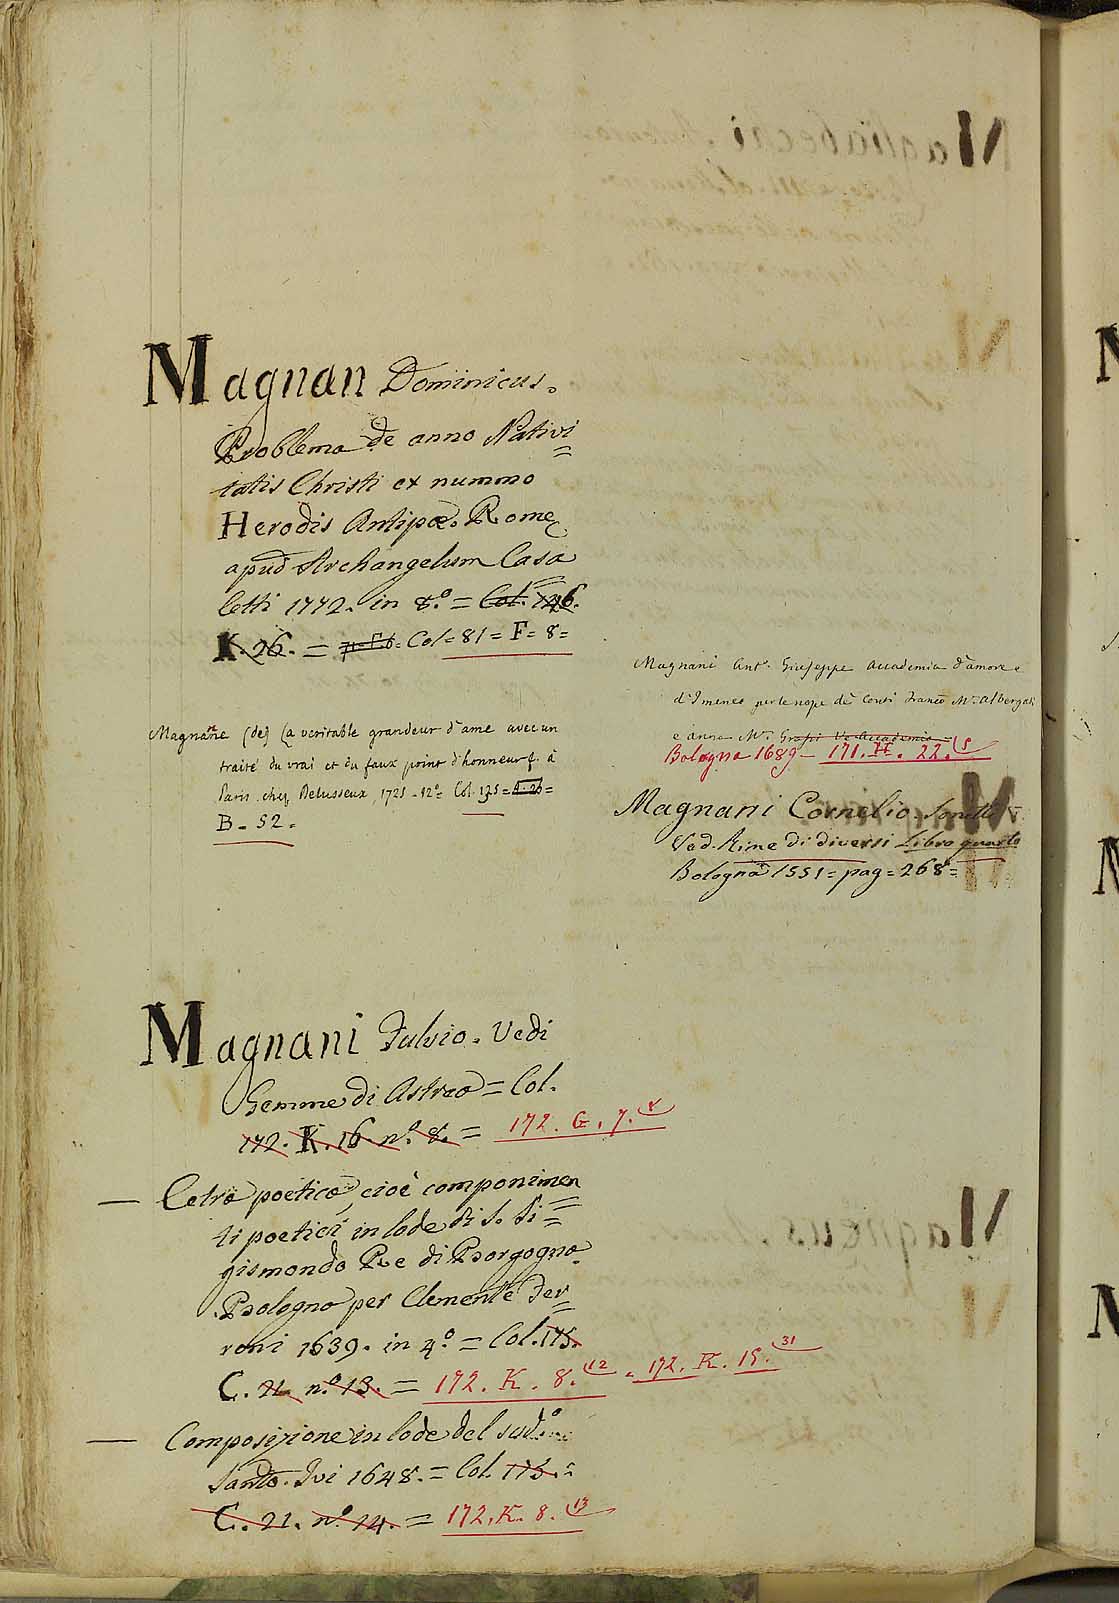 Magnan Dominicus.
Problema de anno Nativi
tatis Christi ex nummo
Herodis Antipæ. Rome
apud Archangelum Casa
letti 1772. in 8.º = Col. 146.
K. 26. = Col = 81 = F = 8 =
Magnane (de) La veritable grandeur d'ame avec un
traité du vrai et du faux point d'honneur f. à
Paris chez Delusseux, 1725 - 12º = Col. 135 =
B - 52 =
Magnani Fulvio. Vedi
Gemme di Astreo = Col.
172. K. 16. nº. 8. = 172. G. 7.
— Cetra poetica, cioè componimen
ti poetici in lode di S. Si
gismondo Re di Borgogna.
Bologna per Clemente Fer
roni 1639. in 4.º = Col. 175.
C. 21. nº 13. = 172. K. 8. 12 = 172. K. 15. 31
— Composizione in lode del sudº.
Santo. Ivi 1648. = Col. 175. =
C. 21. nº. 14. = 172. K. 8. 13
Magnani Antº. Giuseppe Accademia d'amore e
d'Imeneo per le nope de Conti Francº Mª. Albergati
e anna Mª. Grassi
Bologna 1689 - 171. H. 22. 5
Magnani Cornelio Sonetti
Ved. Rime di diversi Libro quarto
Bologna 1551 = pag = 268 =